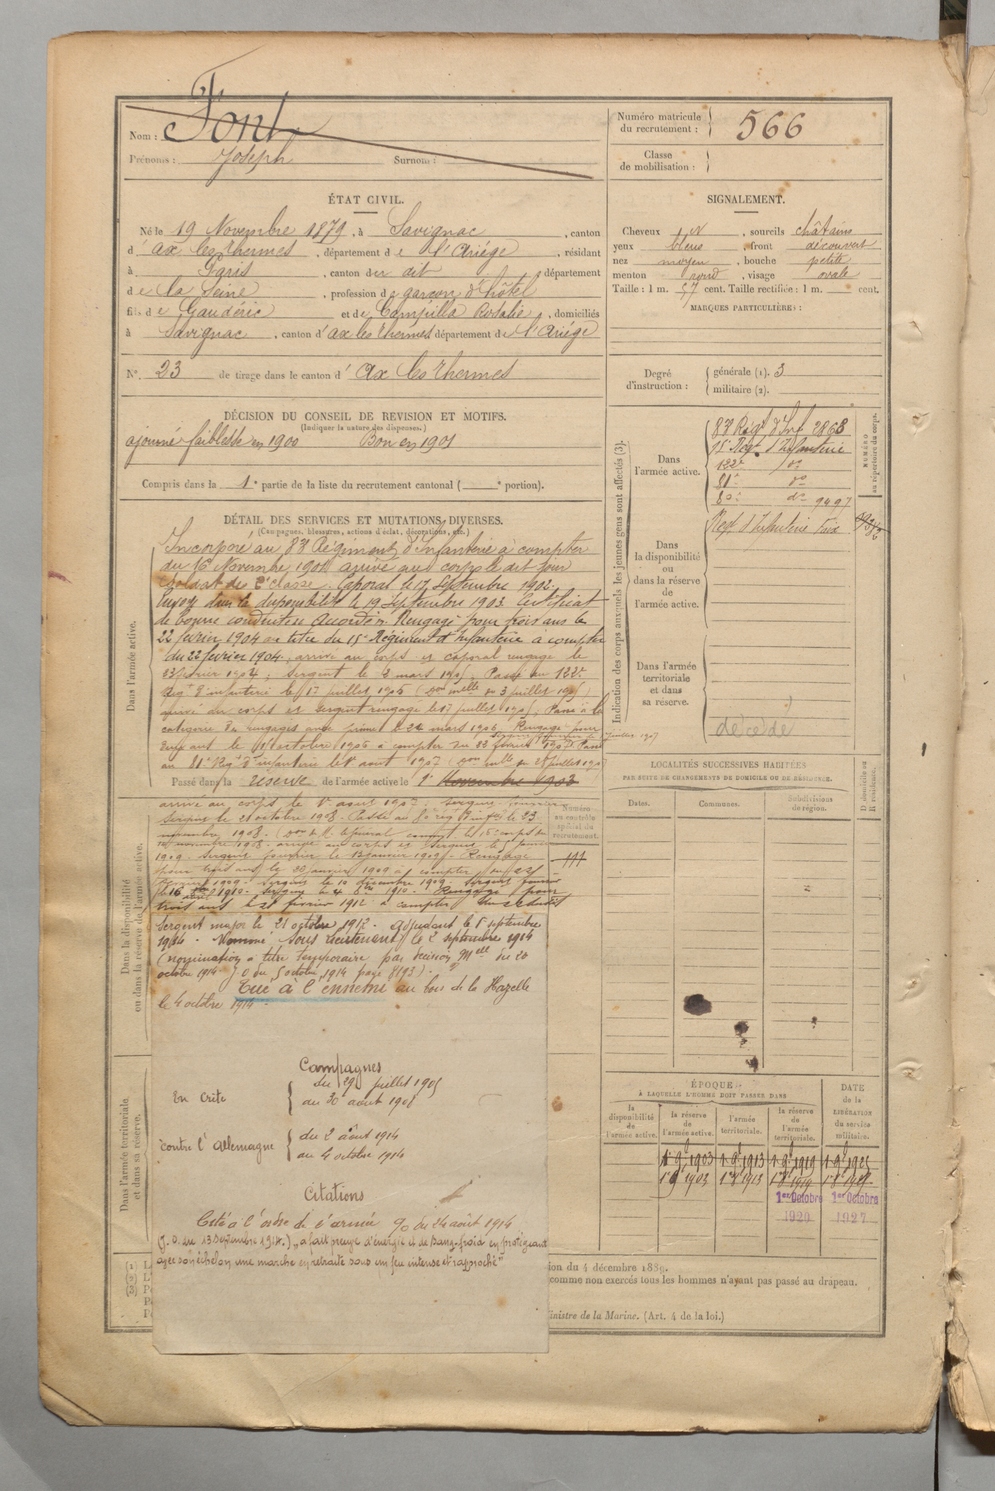 Nom : Font
Prénoms : Joseph Surnom :
Numéro matricule du recrutement : 566
Classe de mobilisation :
ÉTAT CIVIL.
Né le 19 Novembre 1879, à Savignac, canton
d'ax les thermes, département de l'Ariége, résidant
à Paris, canton du dit, département
de la Seine, profession de garçon d'hôtel
fils de Gauderic et de Campilla Rosalie, domiciliés
à Savignac, canton d'ax les thermes département de l'Ariége
N° 23 de tirage dans le canton d'Ax les thermes
SIGNALEMENT.
Cheveux, sourcils châtains
yeux bleus, front découvert
nez moyen, bouche petite
menton rond, visage ovale
Taille : 1 m. 57 cent. Taille rectifiée : 1 m. cent.
MARQUES PARTICULIÈRES :
Degré d'instruction : générale (1). 3
militaire (2).
DÉCISION DU CONSEIL DE REVISION ET MOTIFS.
(Indiquer la nature des dispenses.)
ajourné faiblesse en 1900 Bon en 1901
Compris dans la 1e partie de la liste du recrutement cantonal ( e portion).
DÉTAIL DES SERVICES ET MUTATIONS DIVERSES.
(Campagnes, blessures, actions d'éclat, décorations, etc.)
Incorporé au 83e Régiment d'Infanterie à compter
du 16 Novembre 1901 arrivé au corps le dit jour
soldat de 2e classe. Caporal le 17 Septembre 1902.
Envoyé dans la disponibilité le 19 Septembre 1903 Certificat
de bonne conduite Accordé. Rengagé pour trois ans le
22 fevrier 1904 au titre du 15e Régiment d'Infanterie à compter
du 22 fevrier 1904, arrivé au corps et caporal rengagé le
23 fevrier 1904, Sergent le 2 mars 1905, Passé au 122e
Régt d'infanterie le 17 juillet 1905 (Don melle du 3 juillet 1905)
arrivé au corps et sergent rengagé le 17 juillet 1905, Passé à la
catégorie des rengagés avec prime le 22 mars 1906. Rengagé pour
ans le 1 octobre 1906 à compter du 22 fevrier 1907. Passé
au 81e Régt d'infanterie le 1er aout 1907 (Don melle du juillet 1907)
Passé dans la réserve de l'armée active le 1er Novembre 1903
arrivé au corps le 1er aout 1907. Sergent fourrier
Sergent le 21 octobre 1908. Passé au 80e rég. d'inf. le 23
novembre 1908.
1909. Sergent fourrier le 12 janvier 1909. Rengagé
pour trois ans le 20 janvier 1909 à compter du 22
fevrier 1909. Sergent le 10 décembre 1909. Sergent fourrier
trois ans le 21 fevrier 1912 à compter du
Sergent major le 21 octobre 1912. adjudant le 1er septembre
1914. Nommé sous lieutenant le 2 septembre 1914
(nomination à titre temporaire par décision Melle du 20
octobre 1914 J.O du 5 octobre 1914 page 8193).
Tué à l'ennemi au bois de la Hazelle
le 4 octobre 1914.
Campagnes
En Crète du 29 juillet 1905
au 20 aout 1906
contre l'Allemagne du 2 août 1914
au 4 octobre 1914
Citations
Cité à l'ordre de l'armée 90 du 24 août 1914
(J.O. du 13 septembre 1914.) "a fait preuve d'énergie et de sang-froid en protégeant
avec son échelon, une marche en retraite sous un feu intense et rapproché"
Dans l'armée active.
Dans la disponibilité ou dans la réserve de l'armée active.
Dans l'armée territoriale et dans sa réserve.
Numéro au contrôle spécial du recrutement.
Indication des corps auxquels les jeunes gens sont affectés (3).
NUMÉRO au répertoire du corps.
Dans l'armée active.
83e Régt d'Inf 2868
15e Régt d'Infanterie
122e do
81e do
80e do 9497
Dans la disponibilité ou dans la réserve de l'armée active.
Regt d'Infanterie Foix
Dans l'armée territoriale et dans sa réserve.
décédé
LOCALITÉS SUCCESSIVES HABITÉES
PAR SUITE DE CHANGEMENTS DE DOMICILE OU DE RÉSIDENCE.
Dates. Communes. Subdivisions de région. D domicile ou R résidence.
ÉPOQUE
À LAQUELLE L'HOMME DOIT PASSER DANS
la disponibilité de l'armée active. la réserve de l'armée active. l'armée territoriale. la réserve de l'armée territoriale.
DATE de la LIBÉRATION du service militaire.
1er 9bre 1903 1er 9bre 1913 1er 9bre 1919
1er Octobre 1920 1er Octobre 1927
ion du 4 décembre 1889.
comme non exercés tous les hommes n'ayant pas passé au drapeau.
inistre de la Marine. (Art. 4 de la loi.)